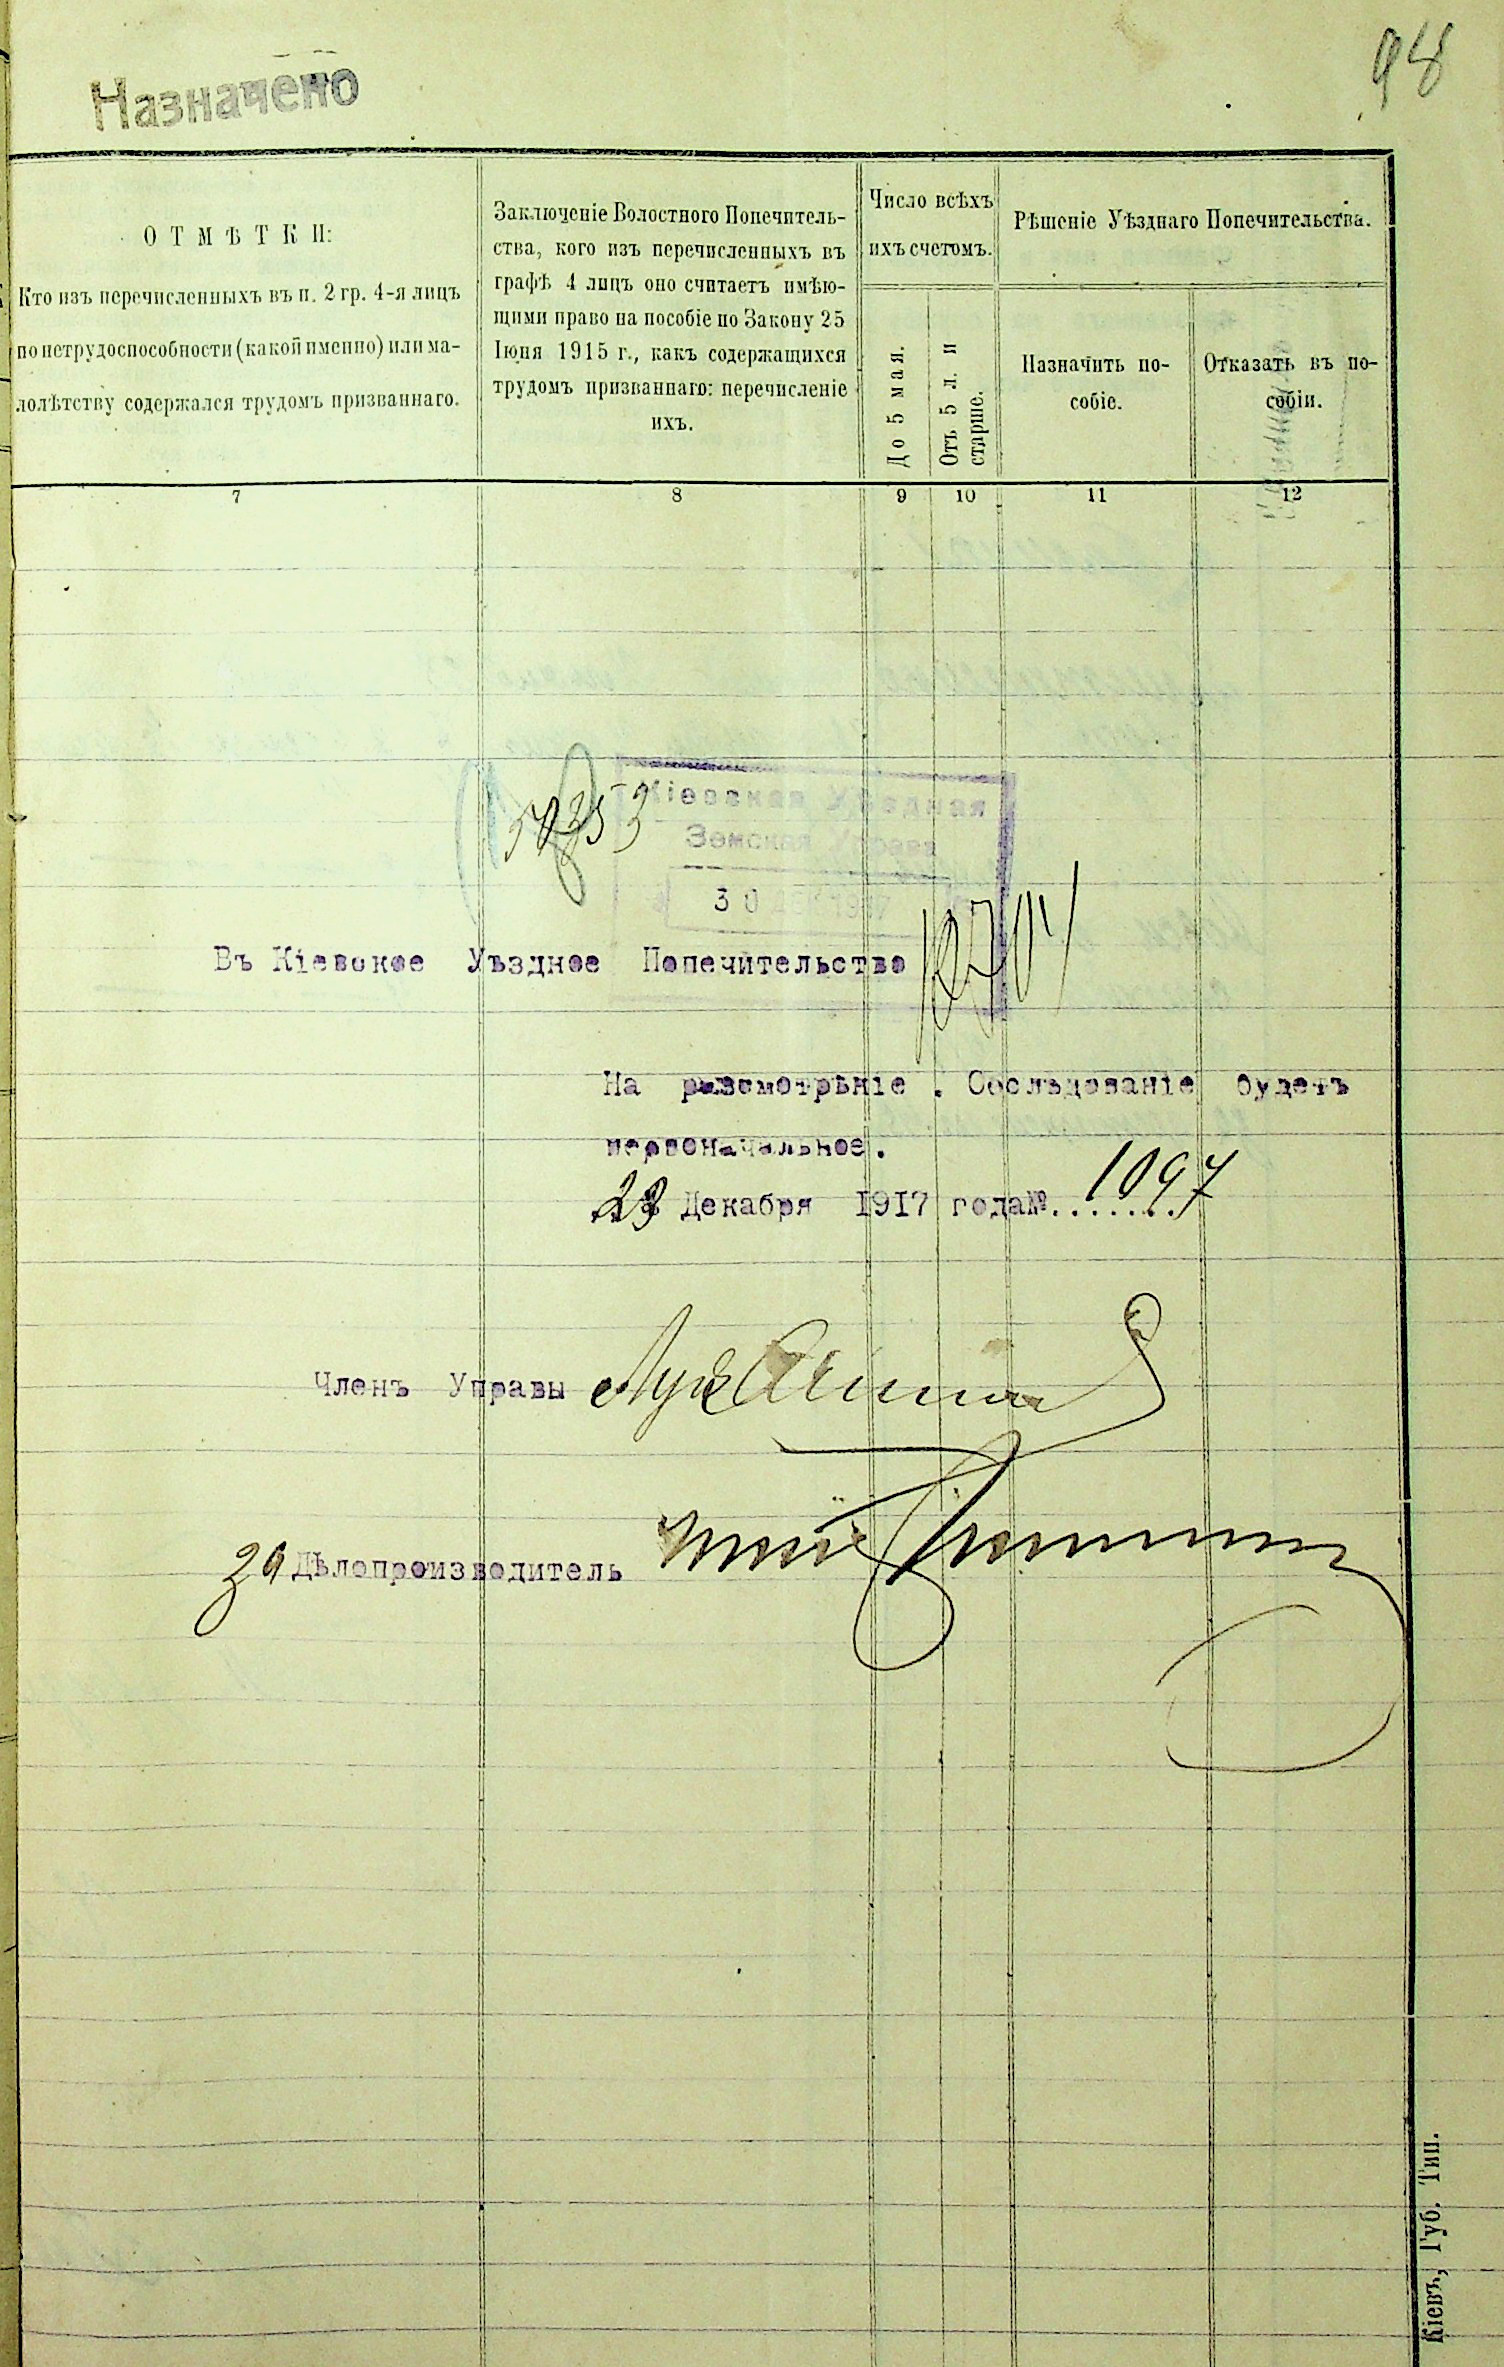 98
Назначено
ОТМѢТКИ:
Кто изъ перечисленныхъ въ п. 2 гр. 4-я лицъ
по нетрудоспособности (какой именно) или ма-
лолѣтству содержался трудомъ призваннаго.
Заключеніе Волостного Попечитель-
ства, кого изъ перечисленныхъ въ
графѣ 4 лицъ оно считаетъ имѣю-
щими право на пособіе по Закону 25
Іюня 1915 г., какъ содержащихся
трудомъ призваннаго: перечисленіе
ихъ.
Число всѣхъ
ихъ счетомъ.
До 5 мая.
Отъ 5 л. и
старше.
Рѣшеніе Уѣзднаго Попечительства.
Назначить по-
собіе.
Отказать въ по-
собіи.
7 8 9 10 11 12
Кіевская Уѣздная
Земская Управа
30
Въ Кіевское Уѣздное Попечительство
На разсмотрѣніе. Обслѣдованіе будетъ
первоначальное.
Декабря 1917 года № 1097
Членъ Управы
За Дѣлопроизводитель
Кіевъ, Губ. Тип.